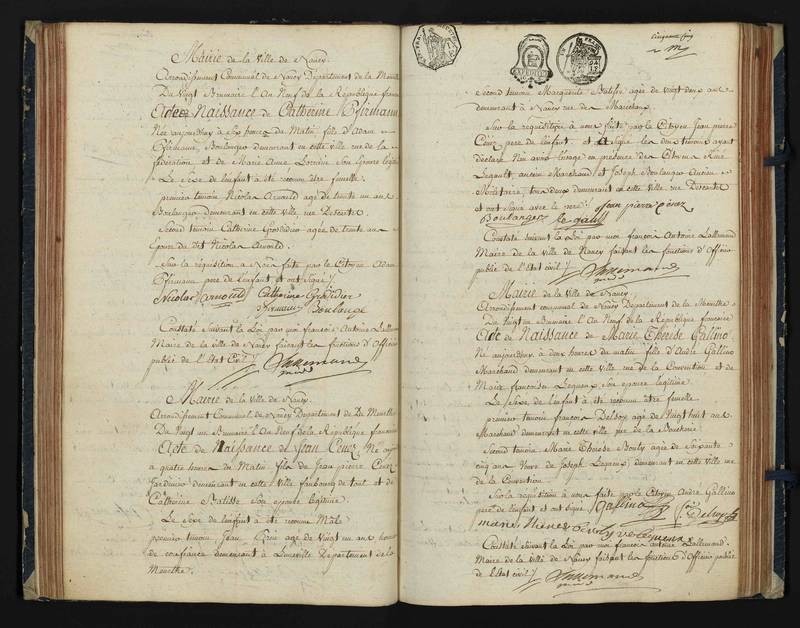 Mairie de la Ville de Nancy
Arrondissement Communal de Nancy Département de la Meurthe
Du Vingt Brumaire l'An Neuf de la République
Acte de Naissance de Catherine Pfirmann
Née aujourdhuy à Six heures du Matin fille d'Adam
Pfirmann, Boulanger demeurant en cette ville rue de la
fédération et de Marie Anne Lorrain Son Epouse
Le Sexe de lenfant à été reconnu femelle
premier temoin Nicolas Arnould agé de trente un ans
Boulanger demeurant en cette ville, rue Descartes.
Second temoin Catherine Grosdidier agée de trente ans
Epouse du dit Nicolas Arnould.
Sur la réquisition à Nous faite par le Citoyen Adam
Pfirmann pere de l'enfant et ont Signé
Nicolas Arnould Catherine Grosdidier
Pfirmann Boulangé
Constaté Suivant la Loi par moi françois Antoine Lallemand
Maire de la Ville de Nancy faisant les fonctions d'Officier
public de l'Etat Civil
Lallemand
Mairie de la Ville de Nancy
Arrondissement Communal de Nancy Département de la Meurthe
Du Vingt un Brumaire l'An Neuf de la République française
Acte de Naissance de Jean Cenez Né
a quatre heures du Matin fils de Jean pierre Cenez
Jardinier demeurant en cette Ville faubourg de toul et de
Catherine Batisse Son epouse legitime.
Le Sexe de lenfant à été reconnu Mâle
premier temoin Jean age de Vingt un ans homme
de confiance demeurant à Luneville Departement de la
Meurthe.
Cinquante Cinq
Second temoin Marguerite Batisse agée de vingt deux ans
demeurant à Nancy rue des Marechaux
Sur la réquisition à nous faite par le Citoyen Jean pierre
Cenez pere de l'enfant et les deux temoins ayant
déclaré N'en avoir l'usage en presence des Citoyens René
Legault, ancien Marchand et Joseph Boulanger Ancien
Militaire, tous deux demeurant en cette Ville, rue Descartes
et ont Signé avec le pere Jean pierre Cenez
Boulanger le gault
Constaté suivant la Loi par moi françois Antoine Lallemand
Maire de la Ville de Nancy faisant les fonctions d'Officier
public de l'Etat Civil
Lallemand
Mairie de la Ville de Nancy
Arrondissement communal de Nancy Département de la Meurthe
Du Vingt un Brumaire l'An Neuf de la République française
Acte de Naissance de Marie Thérèse Gallino
Née aujourdhuy à deux heures du matin fille d'André Gallino
Marchand demeurant en cette Ville rue de la Convention et de
Marie françoise Lequeux Son epouse légitime
Le Sexe de l'enfant à été reconnu être femelle
premier temoin françois Delsoy agé de Vingt huit ans
Marchand demeurant en cette ville rue de la Boucherie
Second temoin Marie Therese Bouly agée de Soixante
cinq ans Veuve de Joseph Lequeux demeurant en cette Ville rue
de la Convention
Sur la réquisition à nous faite par le Citoyen André Gallino
pere de l'enfant et ont Signé Gallino
marie
Constaté Suivant la Loi par moi françois antoine Lallemand
Maire de la Ville de Nancy faisant les fonctions d'Officier public
de l'Etat civil
Lallemand